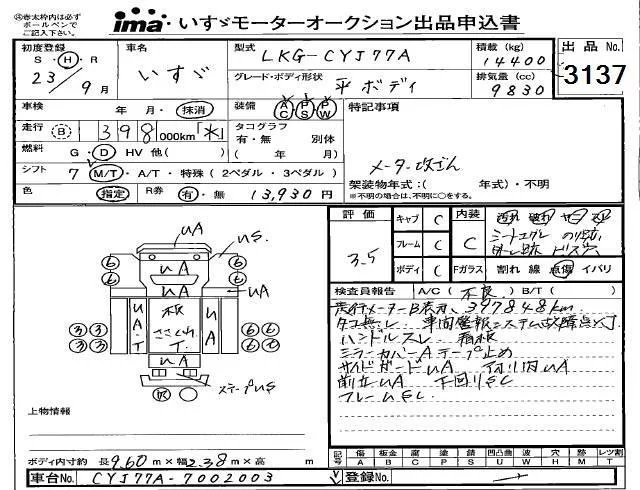 ※赤太枠内は必ず
ボールペンで
ご記入下さい。
ima いすゞモーターオークション出品申込書
初度登録
S・H・R
23年9月
車名
いすゞ
型式
LKG-CYJ77A
グレード・ボディ形状
平ボディ
積載 (kg)
14400
排気量 (cc)
9830
出品 No.
3137
車検 年 月・抹消
装備 AC PS PW
特記事項
走行 B 398000km ＊
タコグラフ
有・無 別体
( 年 月)
燃料 G・D HV 他( )
シフト 7 M/T・A/T・特殊 (2ペダル・3ペダル)
メーター改ざん
架装物年式:( 年式)・不明
※不明の場合は、不明に○をする。
色 指定 R券 有・無 13,930円
評価 3.5
キャブ C
フレーム C
ボディ C
内装 C
汚れ 破れ
シートコゲ のり跡
ビス穴
Fガラス 割れ 線 点傷 イバリ
検査員報告 A/C( 不良 ) B/T( )
走行メーターB表示 397848km
タコ無し 車間警報システム故障点灯
ハンドルスレ 看板
ミラーカバーAテープ止め
サイドガードUA アオリ内UA
前立UA 下回りSC
フレームSC
UA
US
UA
UA
6 6 6 6
UA
UA・T
板
ささくれ
T
UA・T
3 3 3 3
6 6 6 6
UA
ステップUS
上物情報
ボディ内寸約 長9.60m×幅2.38m×高 m
記号 傷 A 板金 B 腐 C 塗 P 錆 S 凹凸曲 U 波 W 穴 H 跡 M レツ割 T
車台No. CYJ77A-7002003
登録No.